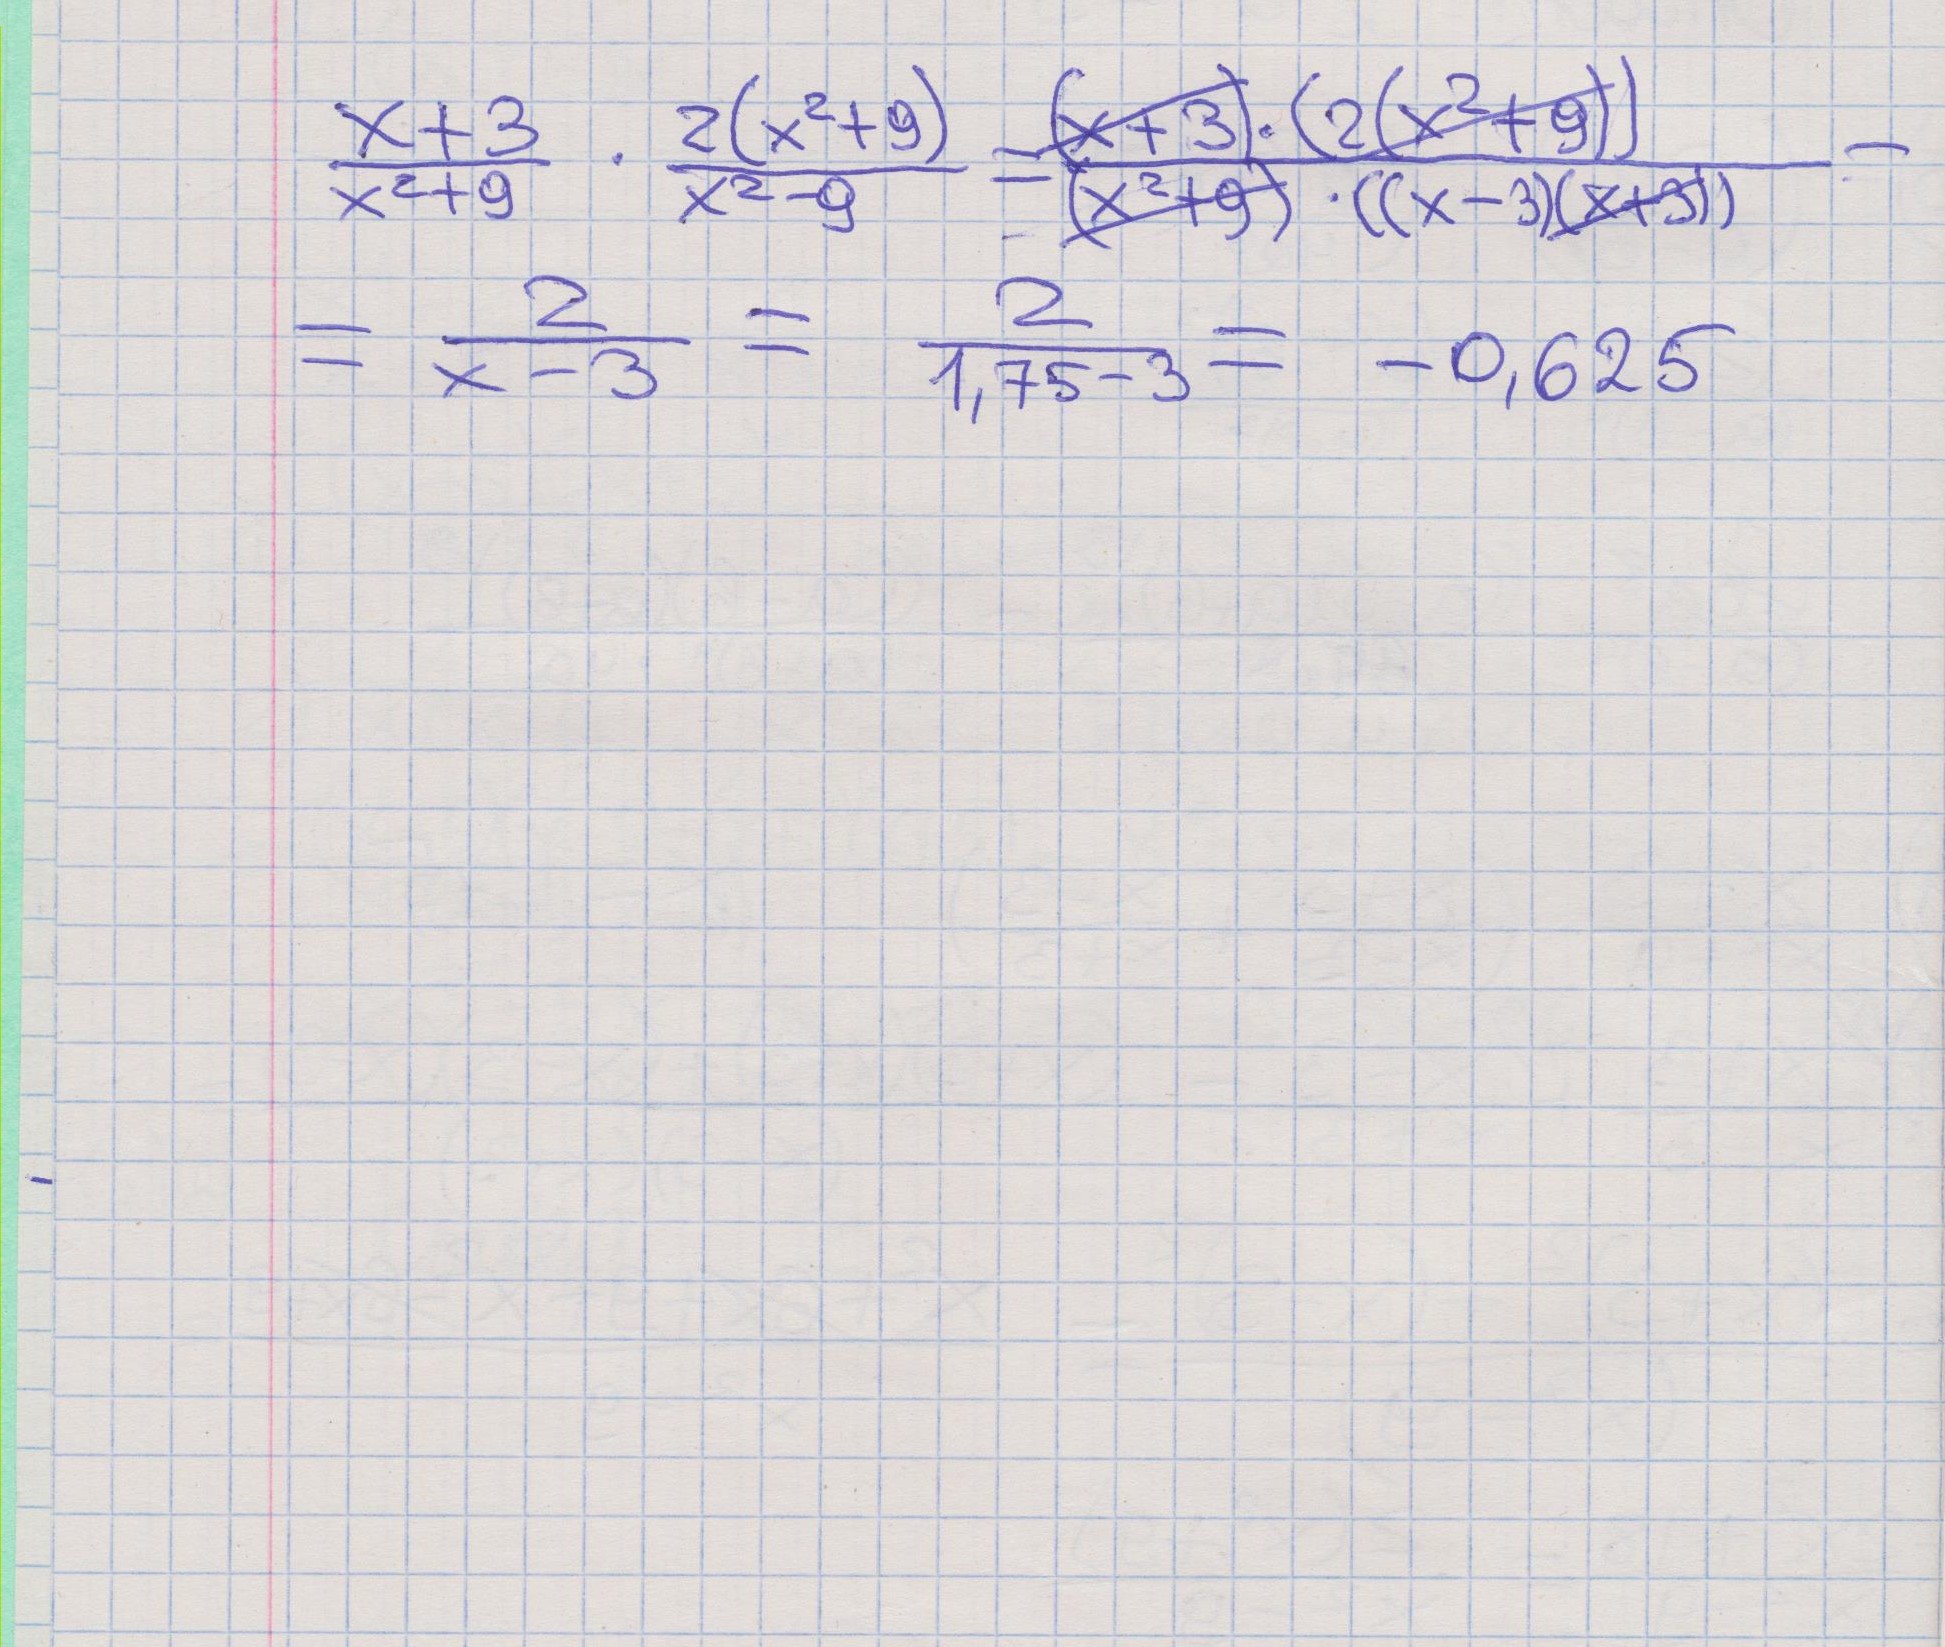 (x+3)/(x²+9) · 2(x²+9)/(x²-9) = (x+3)·(2(x²+9))/(x²+9)·((x-3)(x+3)) =
= 2/(x-3) = 2/(1,75-3) = -0,625